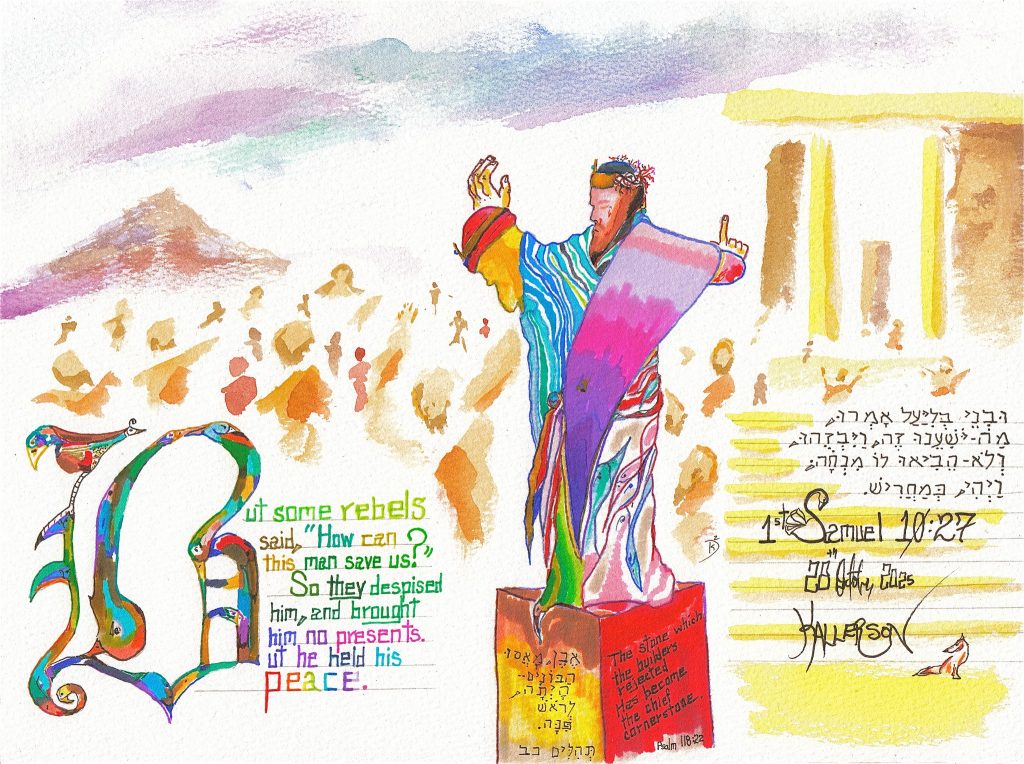 But some rebels
said, "How can
this man save us?"
So they despised
him, and brought
him no presents.
But he held his
peace.
אֶבֶן, מָאֲסוּ
הַבּוֹנִים-
הָיְתָה,
לְרֹאשׁ
פִּנָּה.
תְּהִלִּים כב
The stone which
the builders
rejected
Has become
the chief
cornerstone.
Psalm 118:22
וּבְנֵי בְלִיַּעַל אָמְרוּ,
מַה-יֹּשִׁעֵנוּ זֶה, וַיִּבְזֻהוּ,
וְלֹא-הֵבִיאוּ לוֹ מִנְחָה;
וַיְהִי, כְּמַחֲרִישׁ.
1st Samuel 10:27
2025
KALLERSON